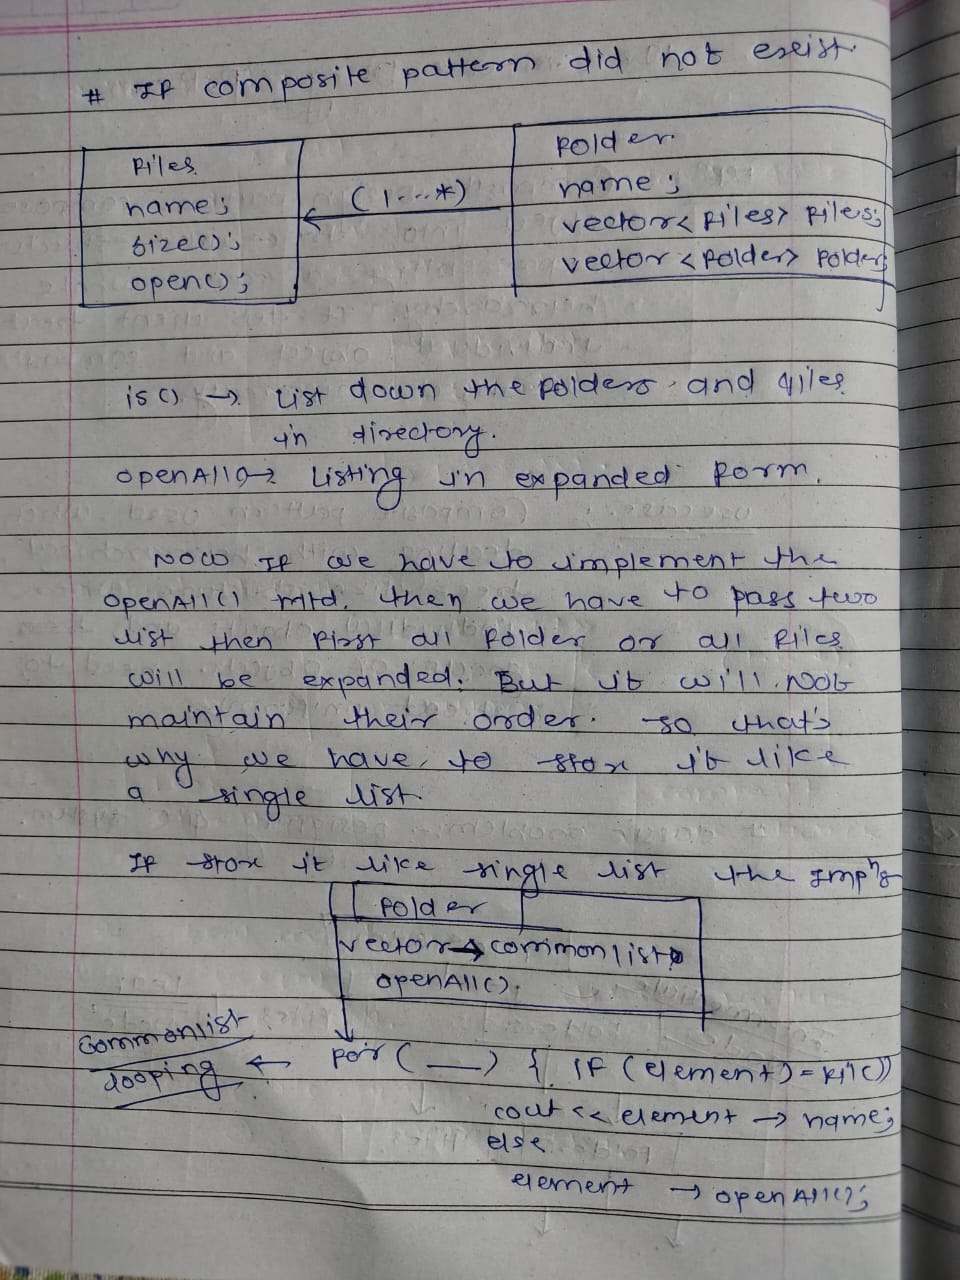 # If composite pattern did not exist.
Files
name;
size();
open();
(1...*)
Folder
name;
vector<Files> Files;
vector<Folder> Folders
is() → List down the folders and files
in directory.
openAll() → Listing in expanded form.
Now If we have to implement the
openAll() mtd. then we have to pass two
list then first all folder or all files
will be expanded. But it will Not
maintain their order. so that's
why we have to store it like
a single list.
If store it like single list the Impn's
Folder
vector → commonlist
openAll().
Commonlist
looping ← for ( __ ) { if (element) = File))
cout << element → name;
else
element → openAll();